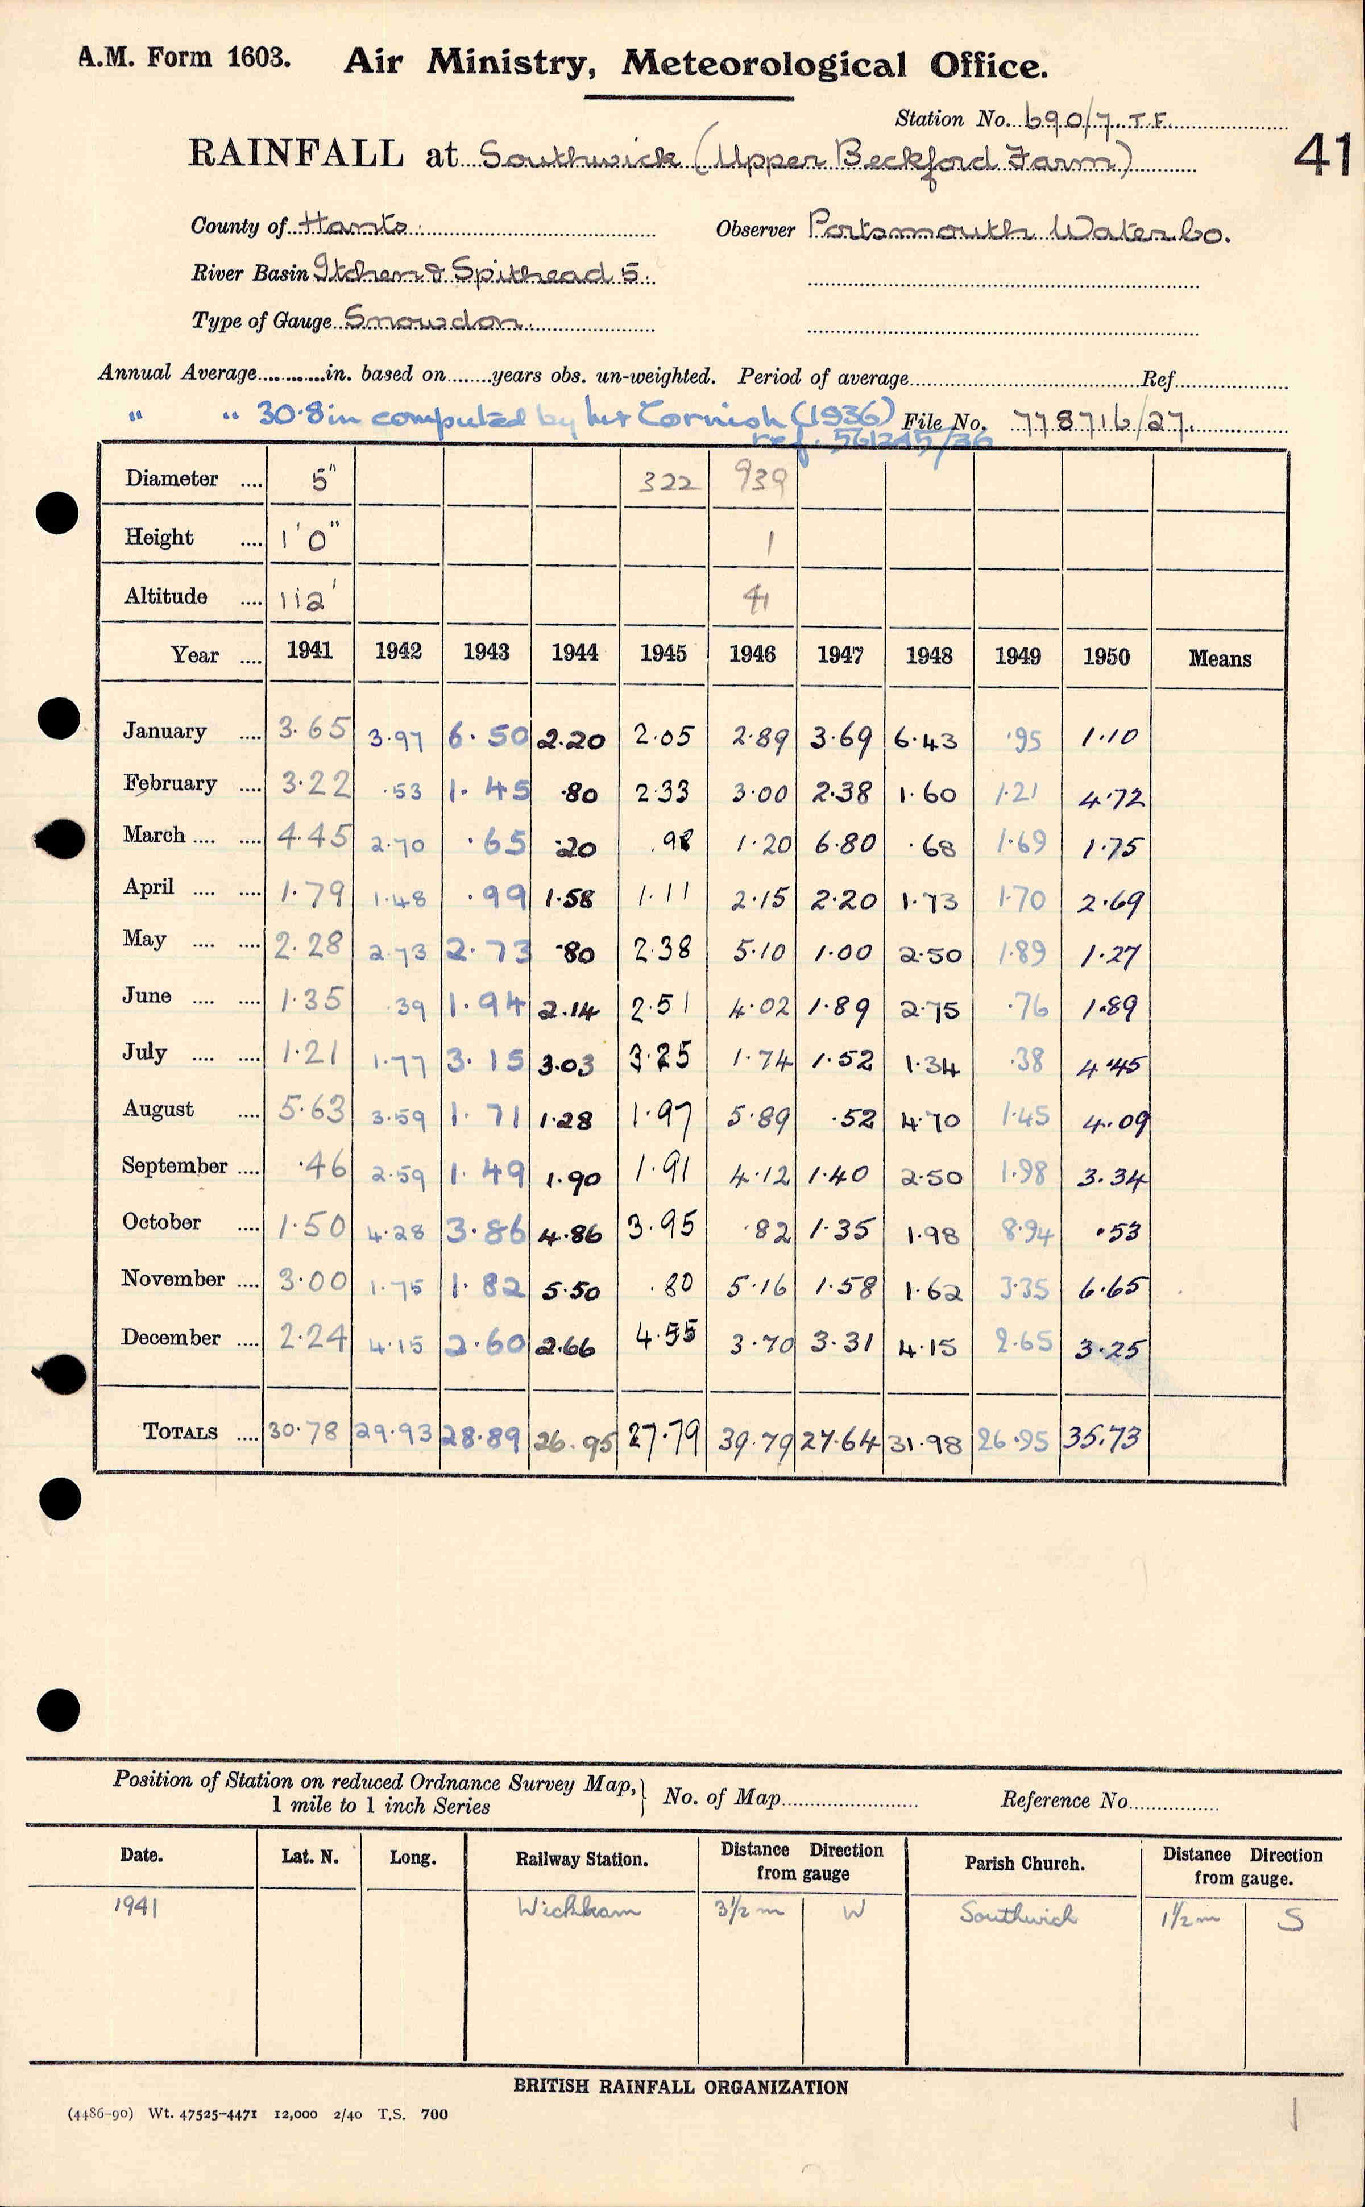 A.M. Form 1603. Air Ministry, Meteorological Office.
Station No. 690/7. T.F.
RAINFALL at Southwick (Upper Beckford Farm)
41
County of Hants. Observer Portsmouth Water Co.
River Basin Itchen & Spithead 5.
Type of Gauge Snowdon.
Annual Average............in. based on........years obs. un-weighted. Period of average...........Ref...........
" " 30.8 in computed by Mr Cornish (1936) File No. 778716/27.
ref. 561245/36
Diameter .... 5" 322 939
Height .... 1'0" 1
Altitude .... 112' 41
Year .... 1941 1942 1943 1944 1945 1946 1947 1948 1949 1950 Means
January .... 3.65 3.97 6.50 2.20 2.05 2.89 3.69 6.43 .95 1.10
February .... 3.22 .53 1.45 .80 2.33 3.00 2.38 1.60 1.21 4.72
March .... .... 4.45 2.70 .65 .20 .98 1.20 6.80 .68 1.69 1.75
April .... .... 1.79 1.48 .99 1.58 1.11 2.15 2.20 1.73 1.70 2.69
May .... .... 2.28 2.73 2.73 .80 2.38 5.10 1.00 2.50 1.89 1.27
June .... .... 1.35 .39 1.94 2.14 2.51 4.02 1.89 2.75 .76 1.89
July .... .... 1.21 1.77 3.15 3.03 3.25 1.74 1.52 1.34 .38 4.45
August .... 5.63 3.59 1.71 1.28 1.97 5.89 .52 4.70 1.45 4.09
September .... .46 2.59 1.49 1.90 1.91 4.12 1.40 2.50 1.98 3.34
October .... 1.50 4.28 3.86 4.86 3.95 .82 1.35 1.98 8.94 .53
November .... 3.00 1.75 1.82 5.50 .80 5.16 1.58 1.62 3.35 6.65
December .... 2.24 4.15 2.60 2.66 4.55 3.70 3.31 4.15 2.65 3.25
TOTALS .... 30.78 29.93 28.89 26.95 27.79 39.79 27.64 31.98 26.95 35.73
Position of Station on reduced Ordnance Survey Map, 1 mile to 1 inch Series } No. of Map........... Reference No...........
Date. Lat. N. Long. Railway Station. Distance Direction from gauge Parish Church. Distance Direction from gauge.
1941 Wickham 3½ m W Southwick 1½ m S
BRITISH RAINFALL ORGANIZATION
(4486-90) Wt. 47525-4471 12,000 2/40 T.S. 700